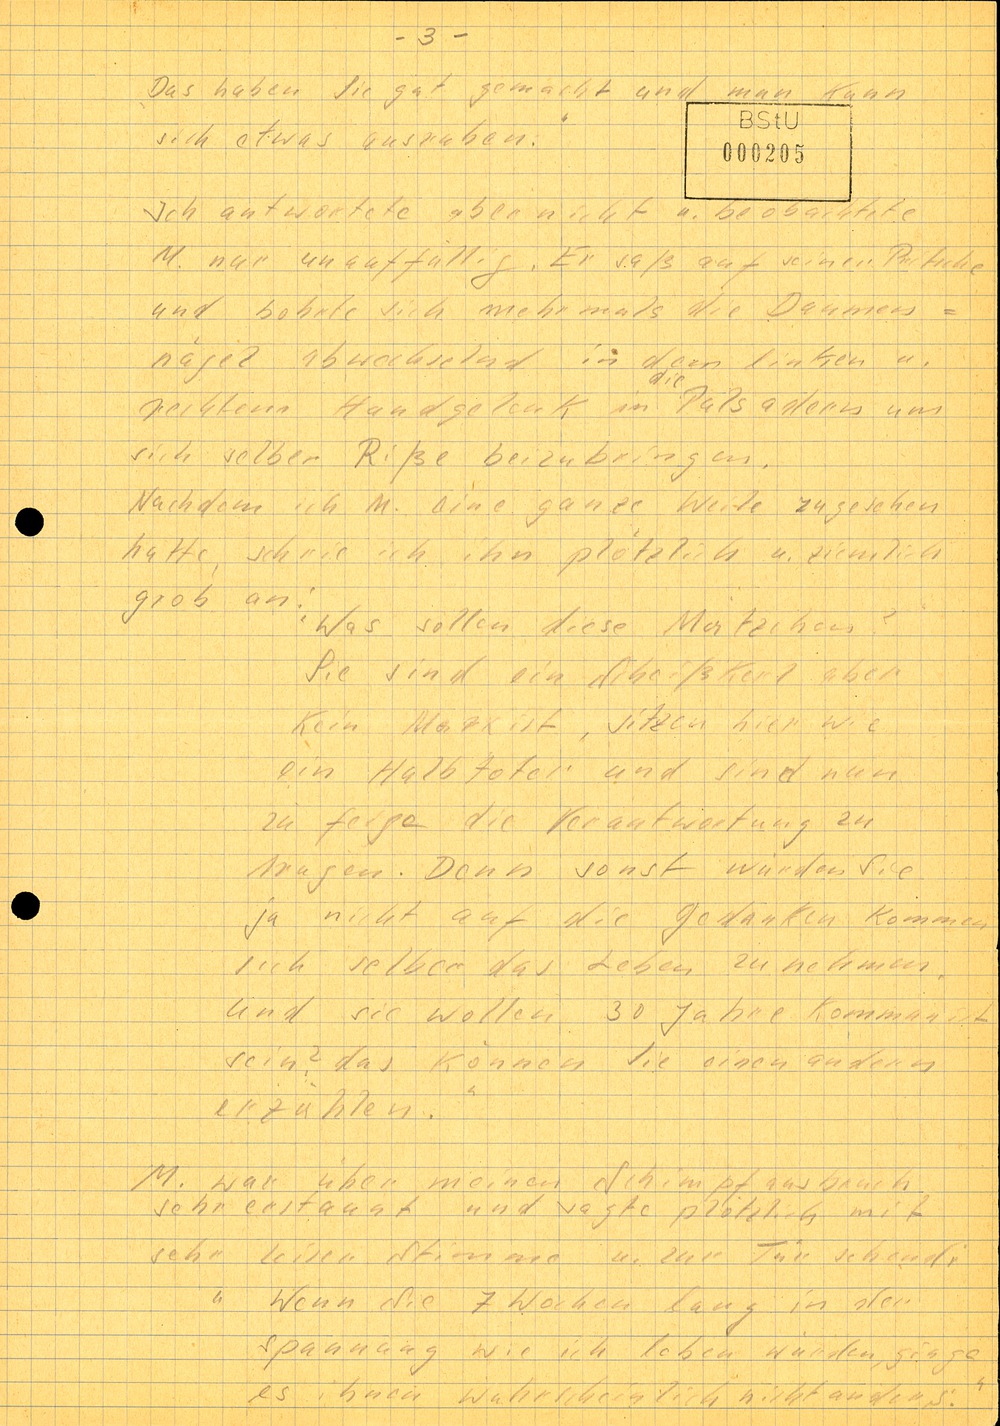 - 3 -
Das haben Sie gut gemacht und man kann
sich etwas ausruhen."
BStU
000205
Ich antwortete aber nicht u. beobachtete
M. nur unauffällig. Er saß auf seiner Pritsche
und bohrte sich mehrmals die Daumen =
nägel abwechselnd in dem linken u.
die
rechten Handgelenk in Pulsadern um
sich selber Riße beizubringen.
Nachdem ich M. eine ganze Weile zugesehen
hatte, schrie ich ihn plötzlich u. ziemlich
grob an:
"Was sollen diese Mätzchen?
Sie sind ein Scheißkerl aber
kein Marxist, sitzen hier wie
ein Halbtoter und sind nun
zu feige die Verantwortung zu
tragen. Denn sonst würden Sie
ja nicht auf die Gedanken kommen
sich selber das Leben zu nehmen.
Und sie wollen 30 Jahre Kommunist
sein? das können Sie einen andern
erzählen."
M. war über meinen Schimpfausbruch
sehr erstaunt und sagte plötzlich mit
sehr leiser Stimme u. zur Tür sehend:
" Wenn Sie 7 Wochen lang in der
spannung wie ich leben würden, ginge
es ihnen wahrscheinlich nicht anders."